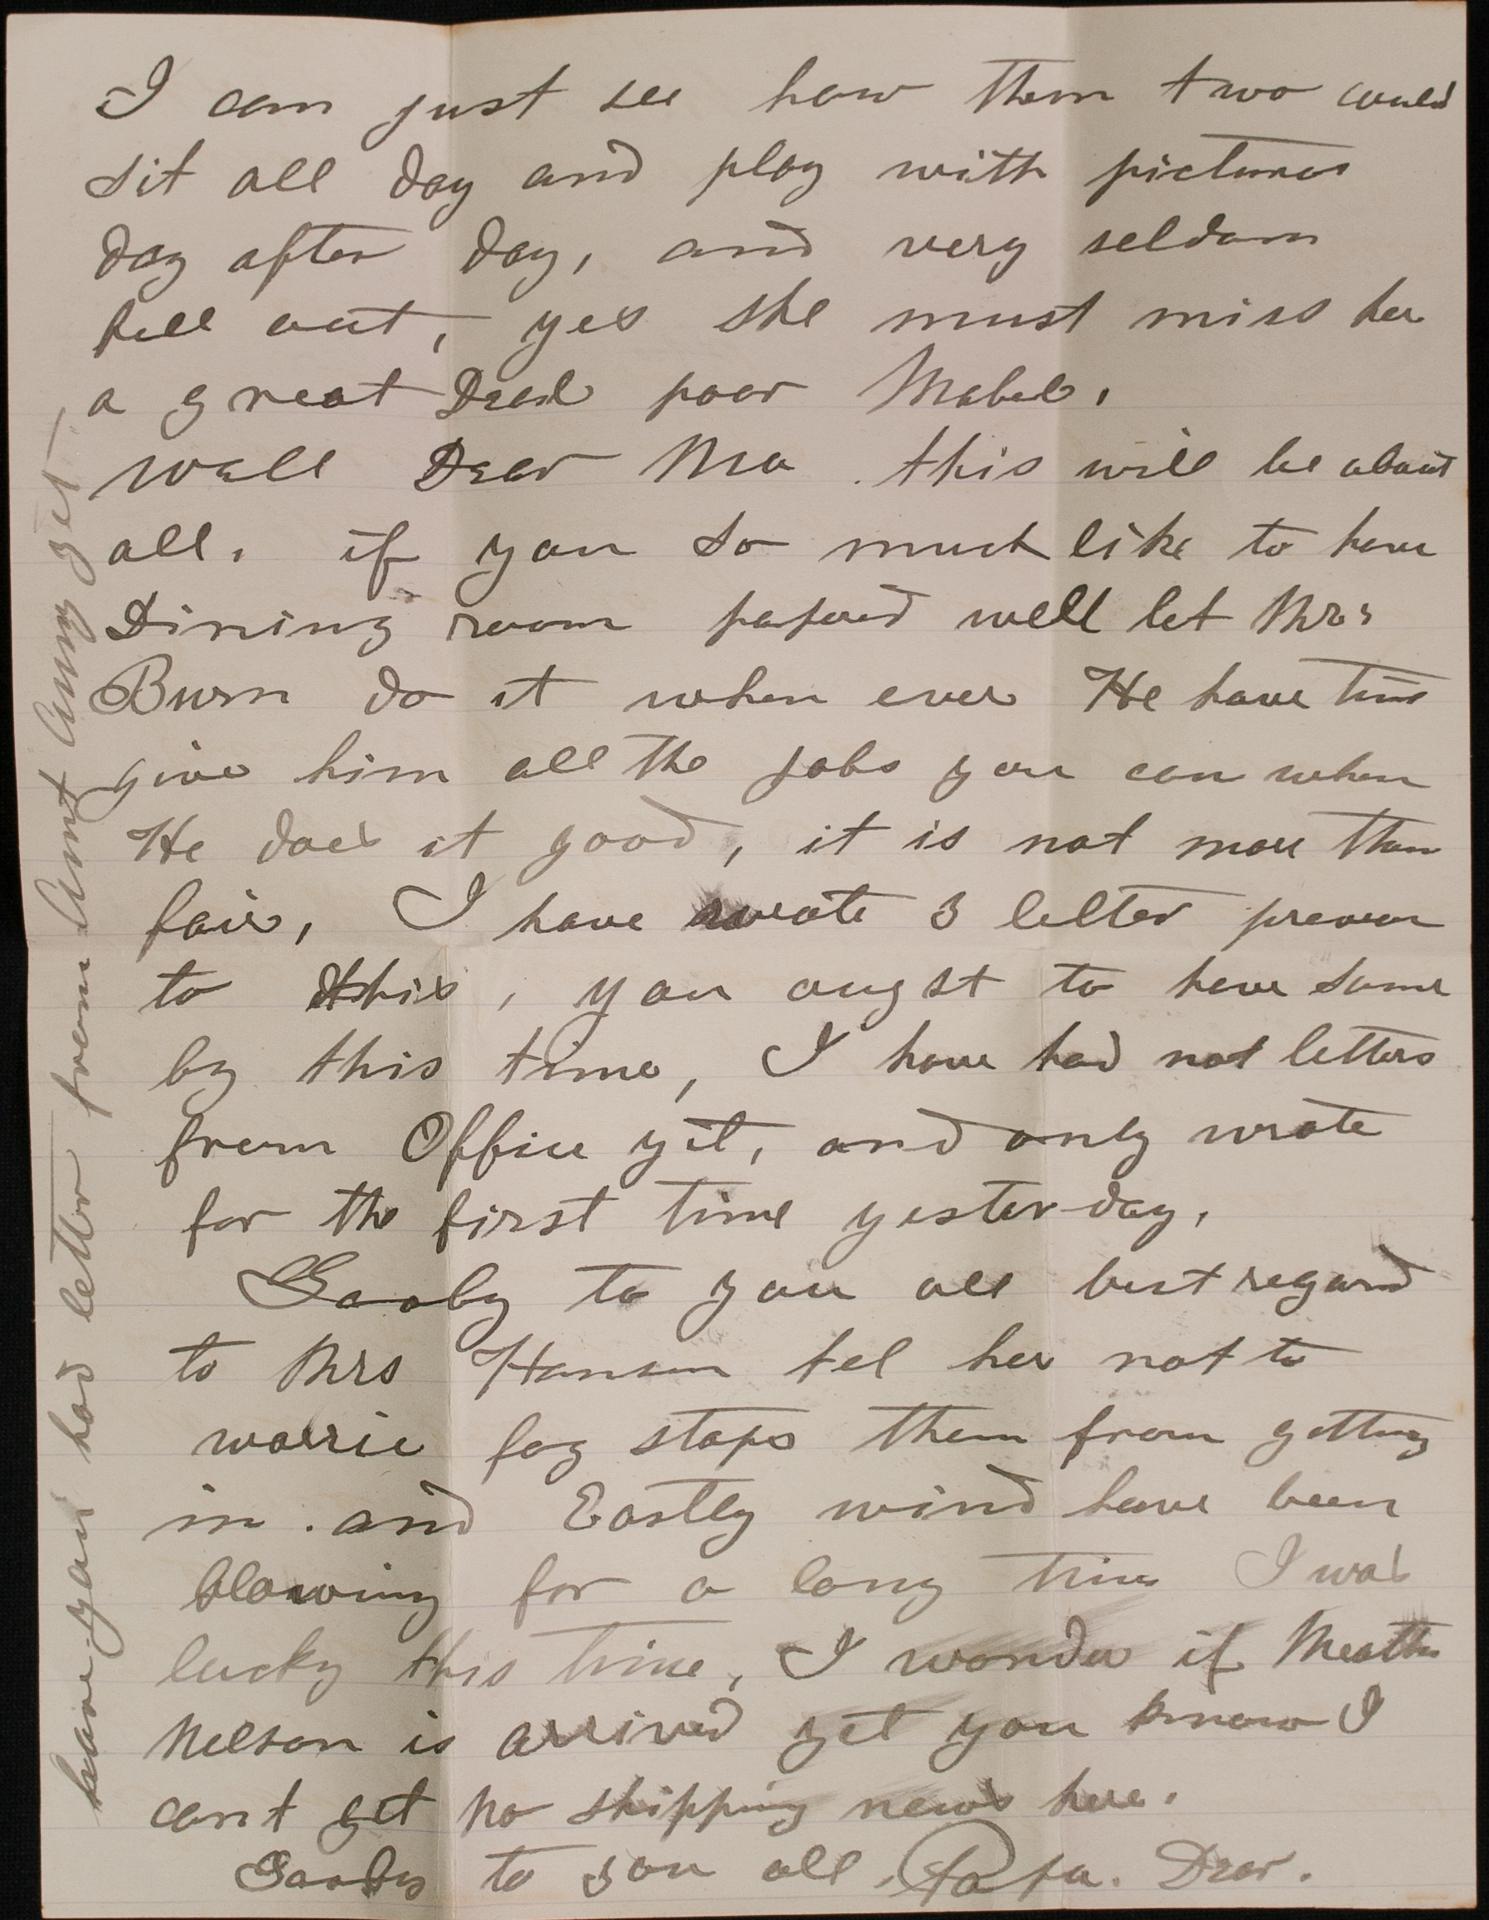 I can just see how them two could
sit all day and play with pictures
day after day, and very seldom
fell out, yes she must miss her
a great Deal poor Mabel.
Well Dear Ma this will be about
all. if you so much like to have
Dining room papered well let Mr.
Burn do it when ever He have time
give him all the jobs you can when
He does it good, it is not more than
fair, I have wrote 3 letter preven
to this, you ougst to have some
by this time, I have had not letters
from Office yet, and only wrote
for the first time yester-day.
Gooby to you all best regard
to Mrs Hansen tel her not to
worrie fog stops them from getting
in. and Eastly wind have been
blowing for a long time I was
lucky this time, I wonder if Meattie
Nelson is arrived yet you know I
cant get no shipping news here.
Gooby to you all. Papa. Dear.
have you had letter from Aunt Anny yet